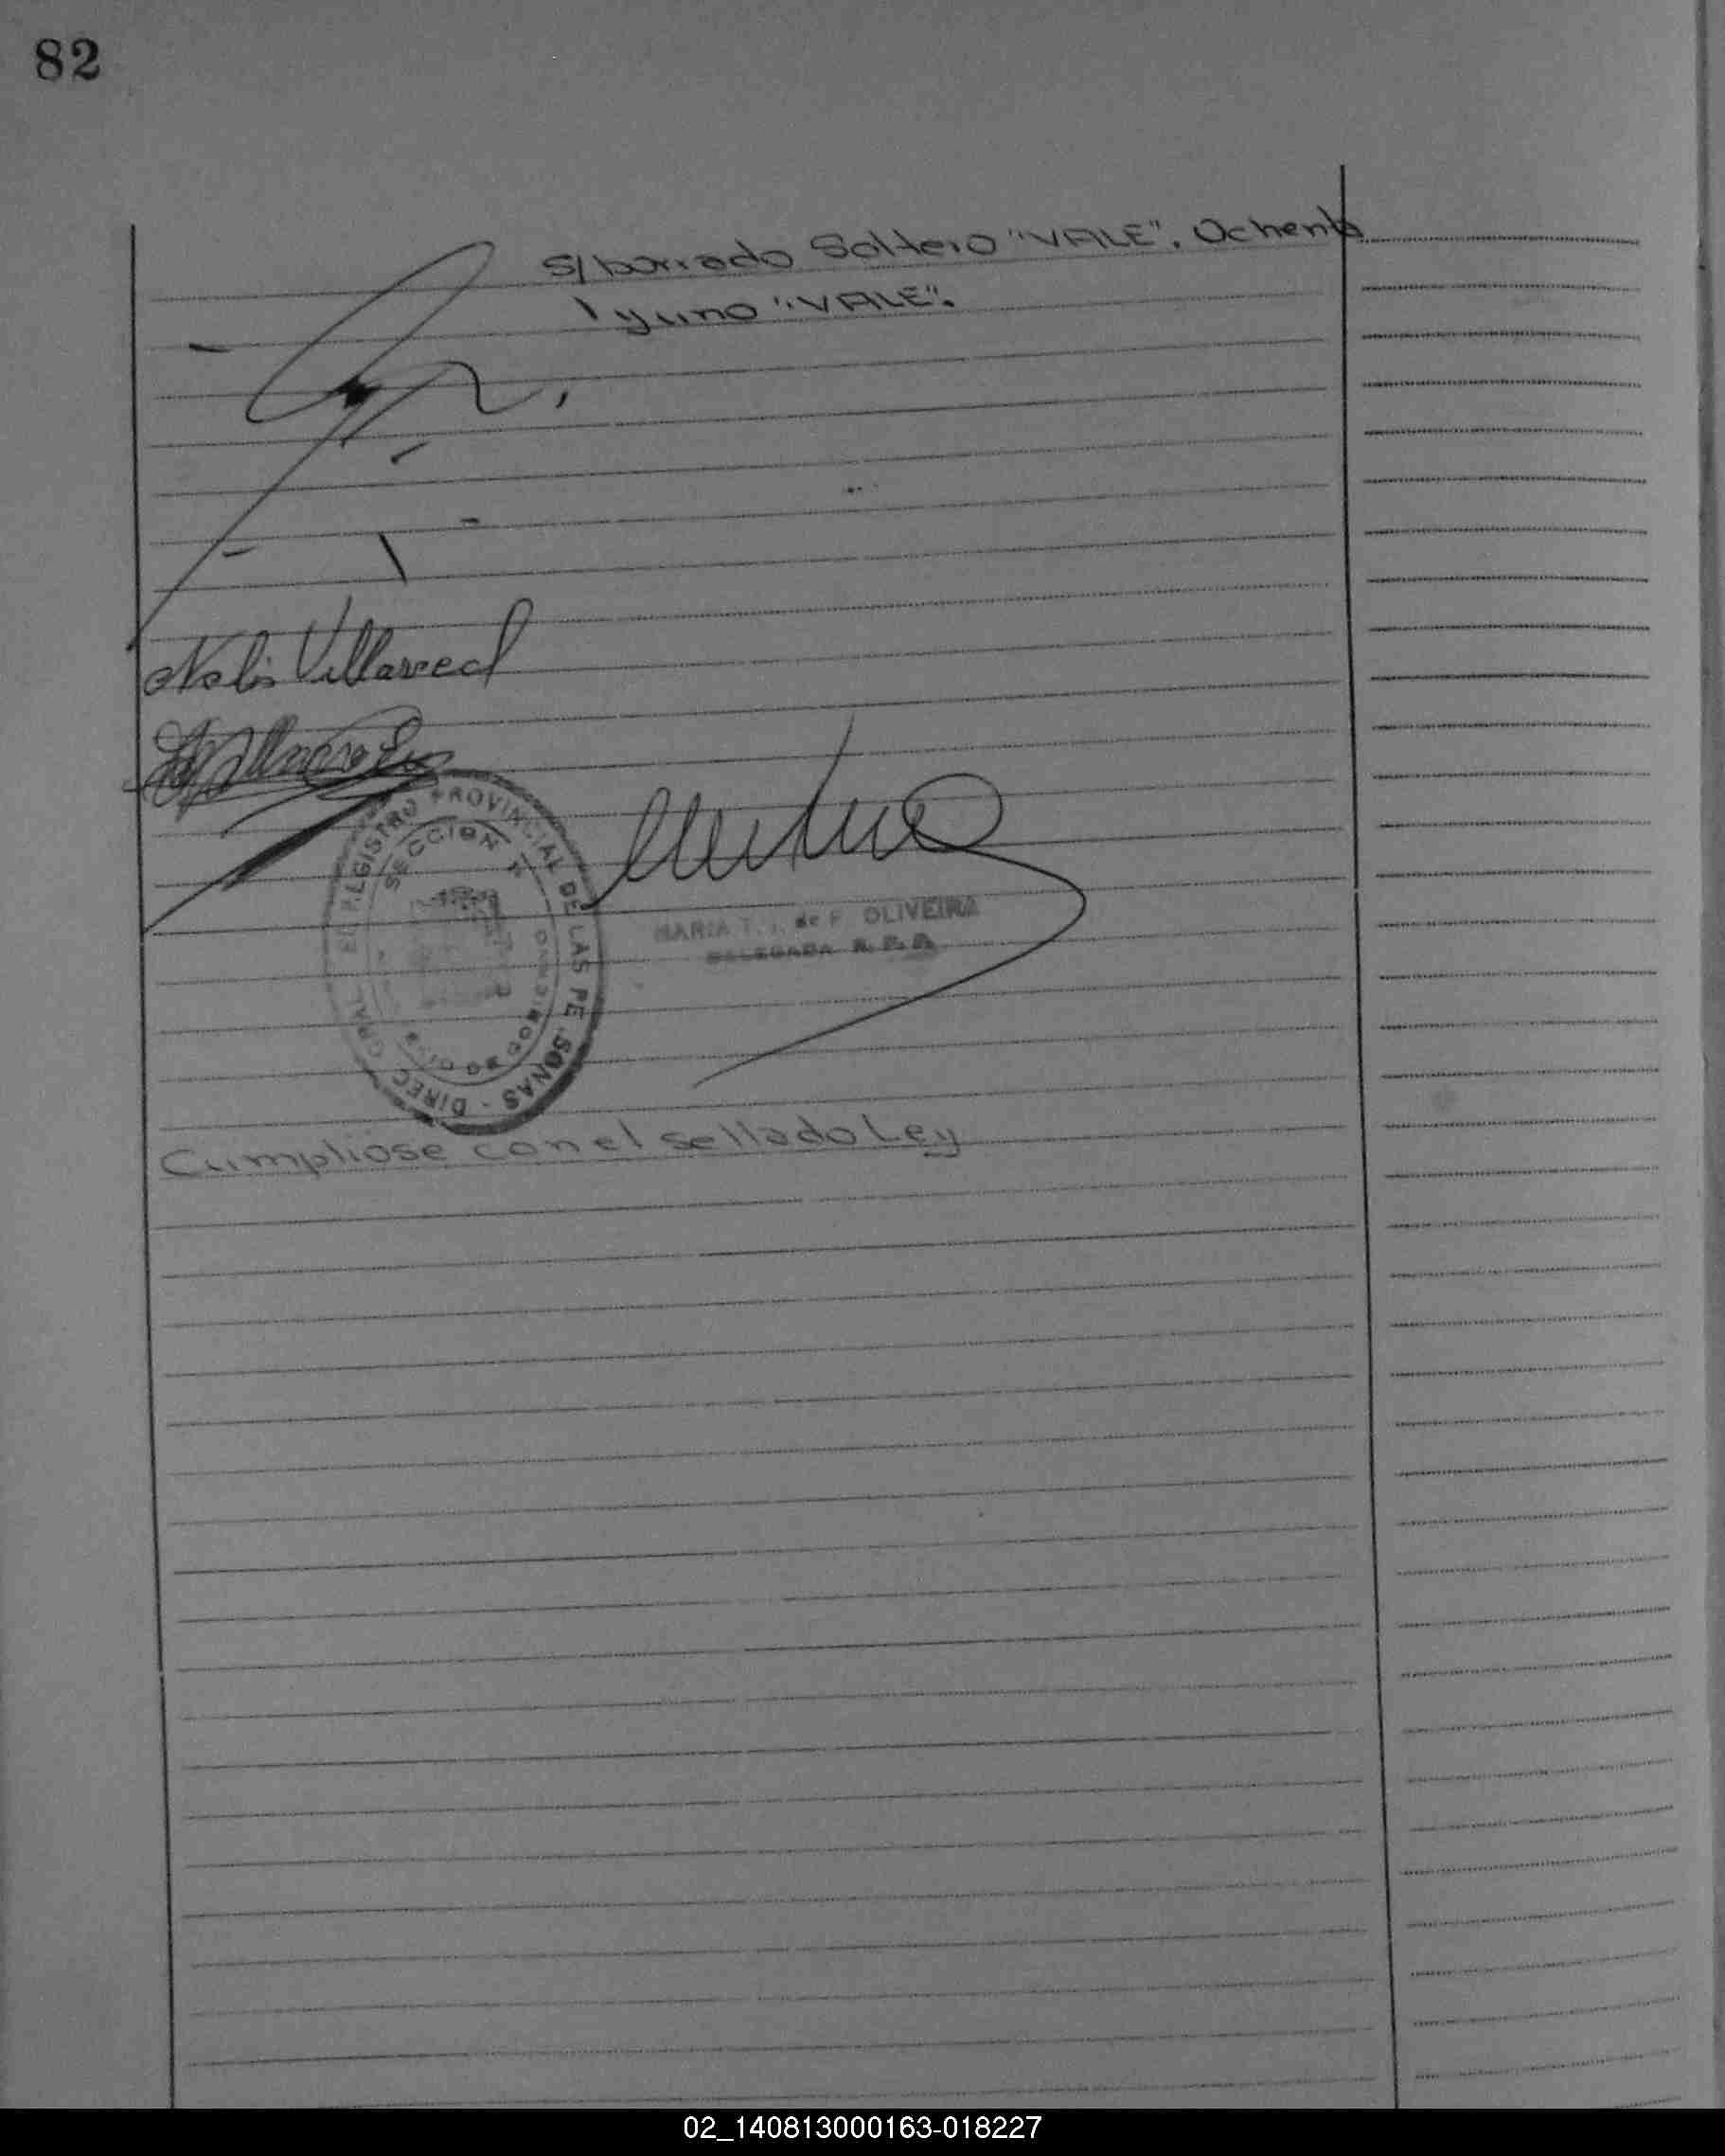 82
s/borrado Soltero "VALE". Ochenta
y uno "VALE".
Nelis Villareal
REGISTRO PROVINCIAL DE LAS PE SONAS - DIREC GRAL
SECCION
MARIA T. J. de F. OLIVEIRA
DELEGADA R. P. P.
Cumpliose con el sellado Ley
02_140813000163-018227